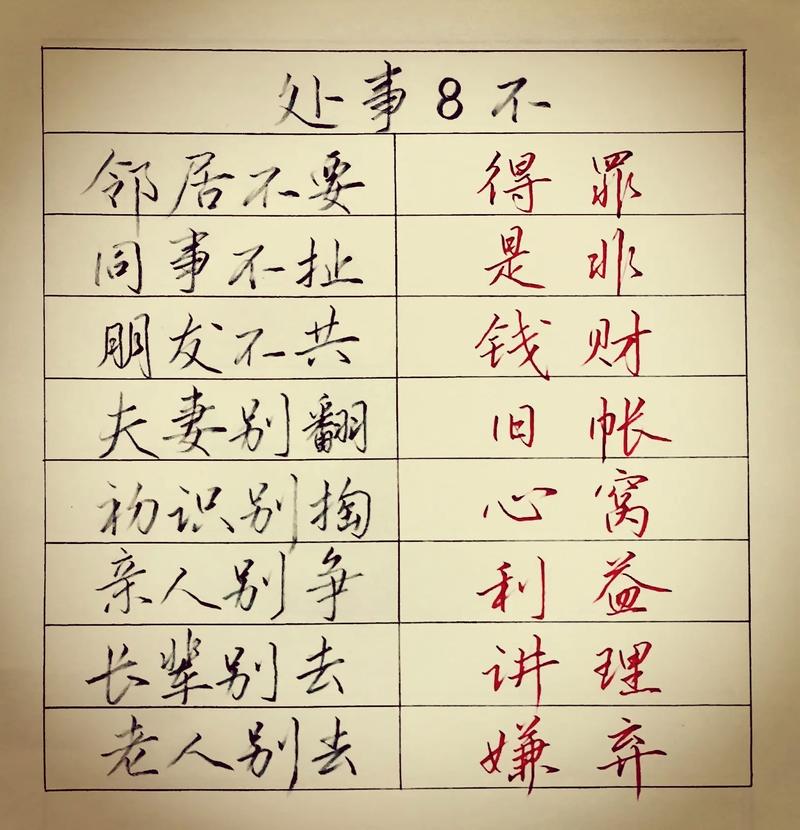 处事8不
邻居不要 得罪
同事不扯 是非
朋友不共 钱财
夫妻别翻 旧帐
初识别掏 心窝
亲人别争 利益
长辈别去 讲理
老人别去 嫌弃